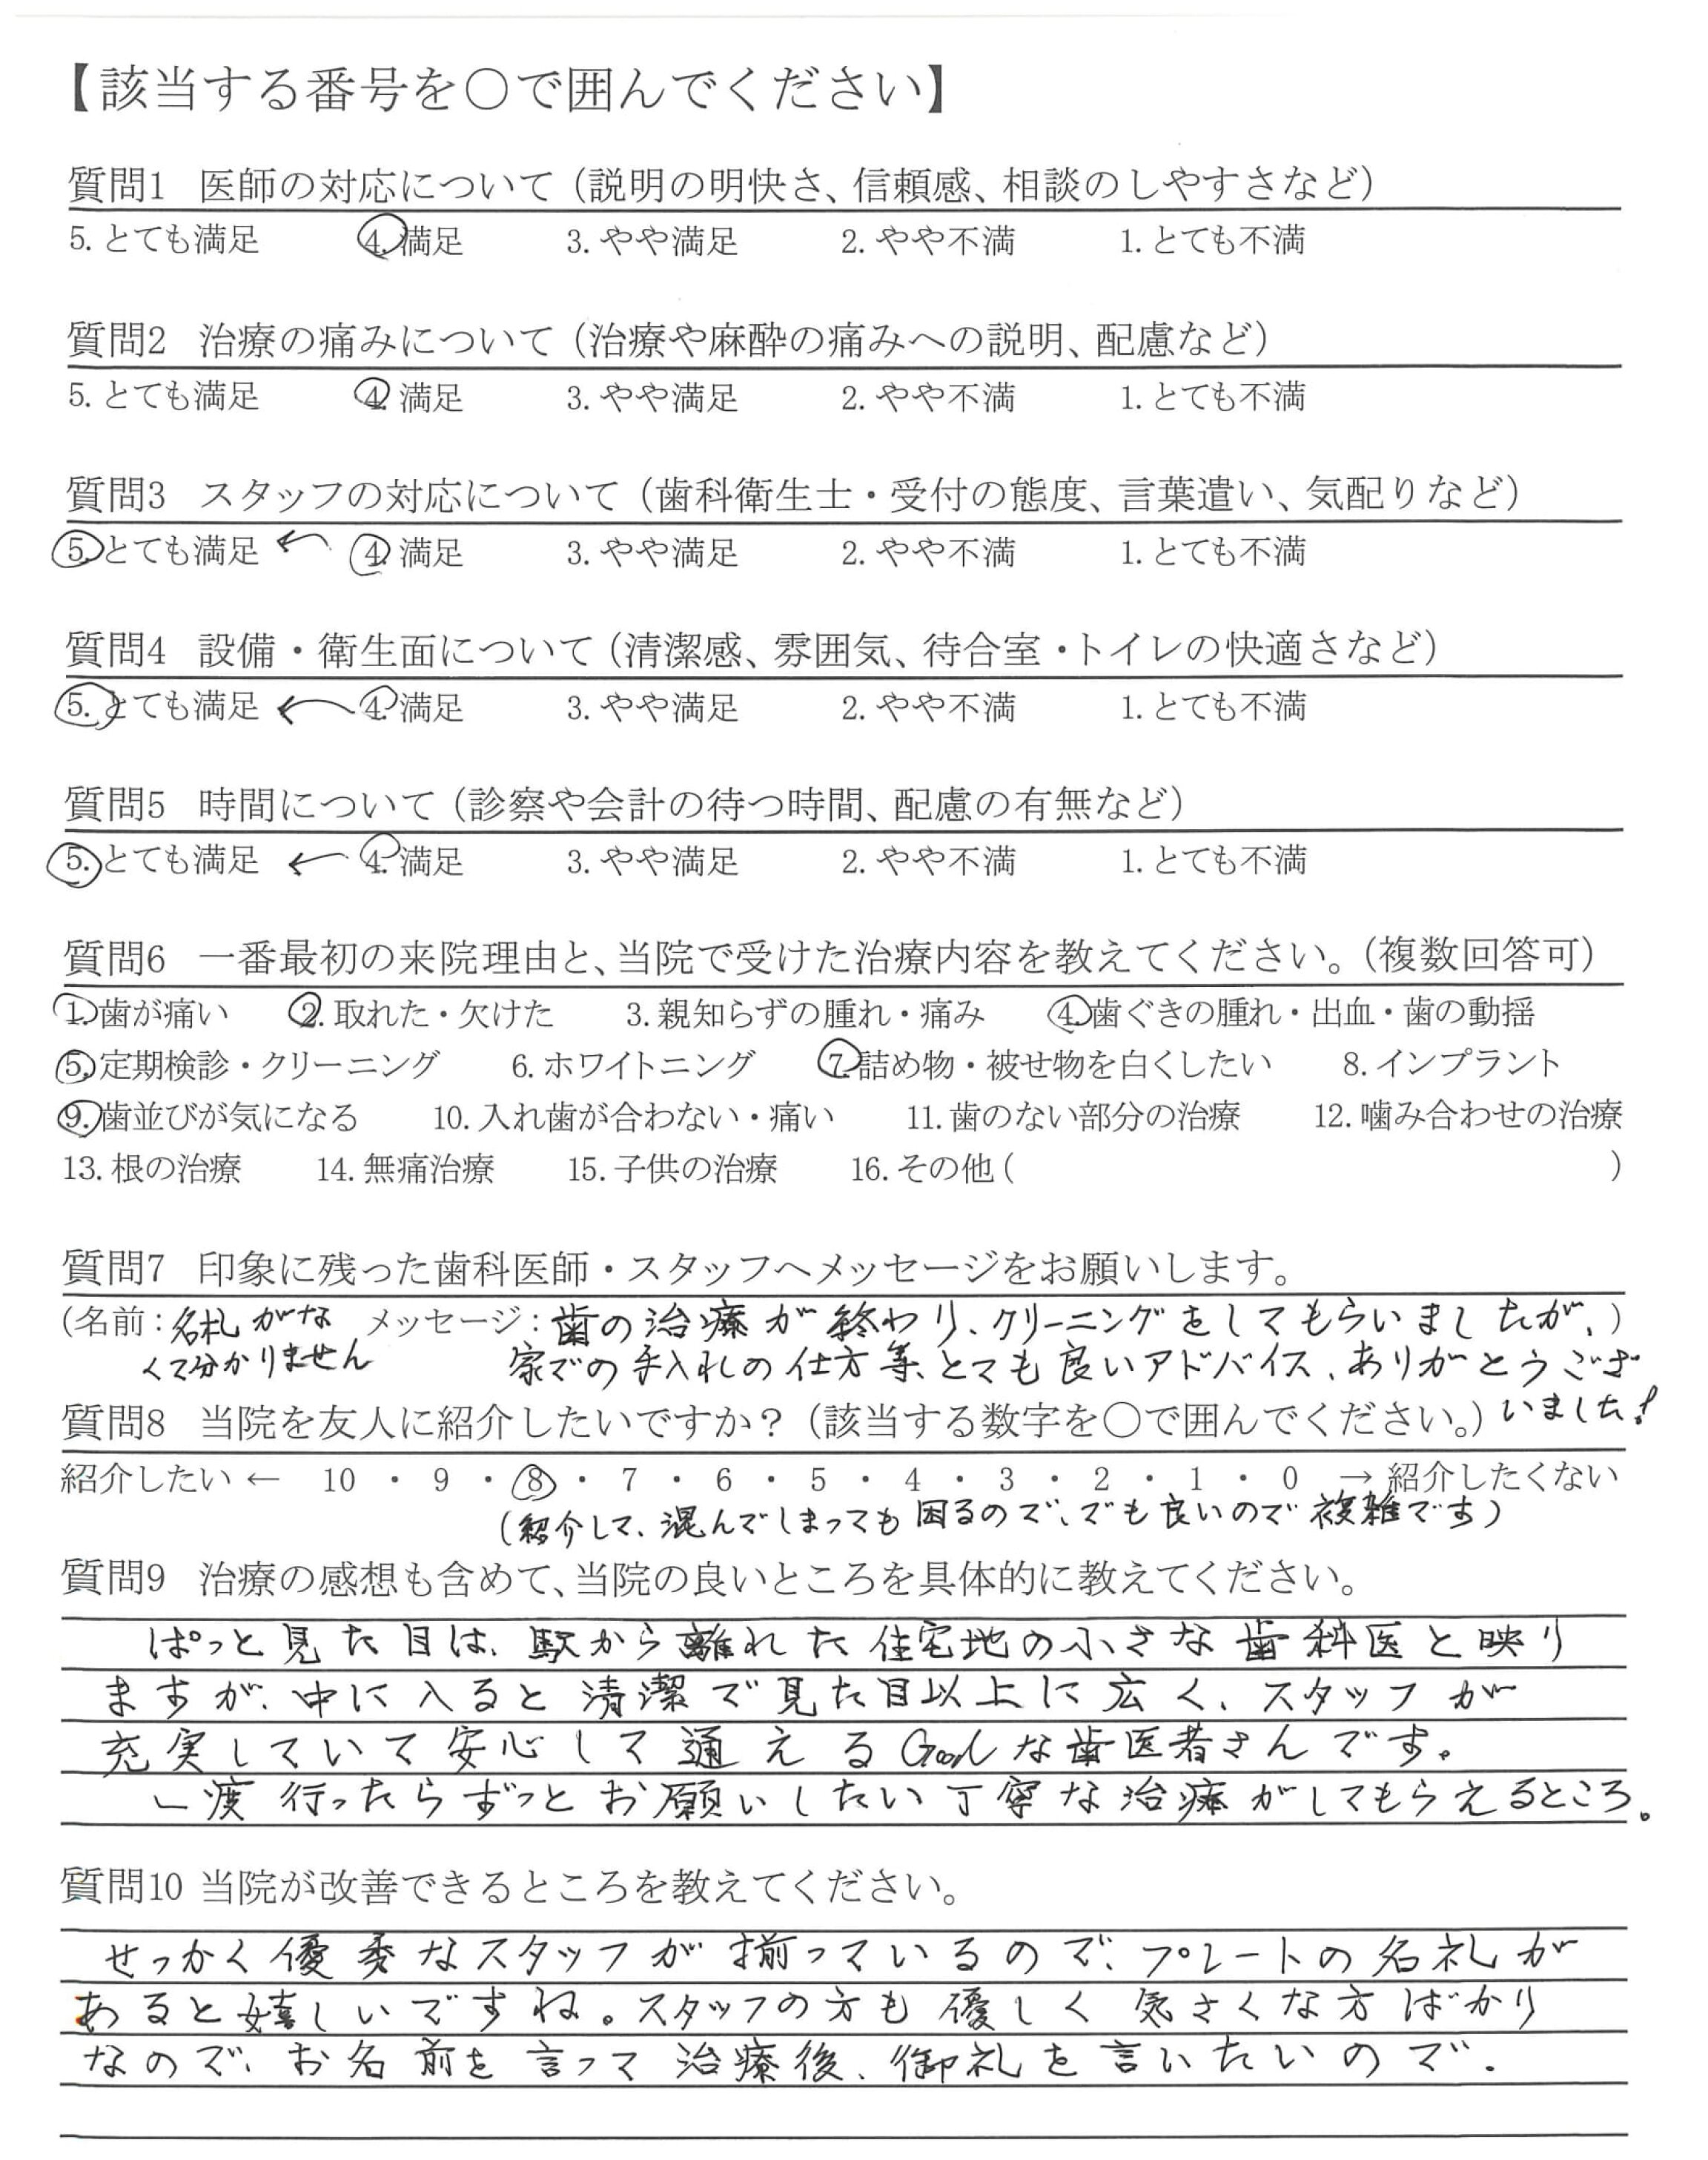 【該当する番号を○で囲んでください】
質問1 医師の対応について（説明の明快さ、信頼感、相談のしやすさなど）
5. とても満足 4. 満足 3. やや満足 2. やや不満 1. とても不満
質問2 治療の痛みについて（治療や麻酔の痛みへの説明、配慮など）
5. とても満足 4. 満足 3. やや満足 2. やや不満 1. とても不満
質問3 スタッフの対応について（歯科衛生士・受付の態度、言葉遣い、気配りなど）
5. とても満足 ← 4. 満足 3. やや満足 2. やや不満 1. とても不満
質問4 設備・衛生面について（清潔感、雰囲気、待合室・トイレの快適さなど）
5. とても満足 ← 4. 満足 3. やや満足 2. やや不満 1. とても不満
質問5 時間について（診察や会計の待つ時間、配慮の有無など）
5. とても満足 ← 4. 満足 3. やや満足 2. やや不満 1. とても不満
質問6 一番最初の来院理由と、当院で受けた治療内容を教えてください。（複数回答可）
1. 歯が痛い 2. 取れた・欠けた 3. 親知らずの腫れ・痛み 4. 歯ぐきの腫れ・出血・歯の動揺
5. 定期検診・クリーニング 6. ホワイトニング 7. 詰め物・被せ物を白くしたい 8. インプラント
9. 歯並びが気になる 10. 入れ歯が合わない・痛い 11. 歯のない部分の治療 12. 噛み合わせの治療
13. 根の治療 14. 無痛治療 15. 子供の治療 16. その他（ ）
質問7 印象に残った歯科医師・スタッフへメッセージをお願いします。
（名前：名札がな メッセージ：歯の治療が終わり、クリーニングをしてもらいましたが、）
くて分かりません 家での手入れの仕方等、とても良いアドバイス、ありがとうござ
質問8 当院を友人に紹介したいですか？（該当する数字を○で囲んでください。） いました！
紹介したい ← 10 ・ 9 ・ 8 ・ 7 ・ 6 ・ 5 ・ 4 ・ 3 ・ 2 ・ 1 ・ 0 → 紹介したくない
（紹介して、混んでしまっても困るので、でも良いので複雑です）
質問9 治療の感想も含めて、当院の良いところを具体的に教えてください。
ぱっと見た目は、駅から離れた住宅地の小さな歯科医と映り
ますが、中に入ると清潔で見た目以上に広く、スタッフが
充実していて安心して通えるGoodな歯医者さんです。
一度行ったらずっとお願いしたい丁寧な治療がしてもらえるところ。
質問10 当院が改善できるところを教えてください。
せっかく優秀なスタッフが揃っているので、プレートの名札が
あると嬉しいですね。スタッフの方も優しく気さくな方ばかり
なので、お名前を言って治療後、御礼を言いたいので.